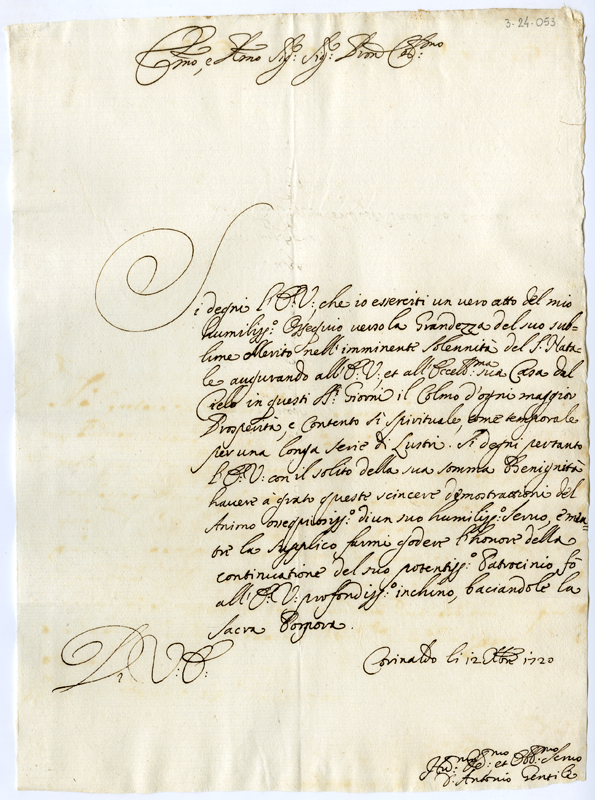 3-24-053
E.mo, e R.mo Sig.r Sig.r Pron Col.mo
Si degni l'E.V: che io esserciti un vero atto del mio
humiliss.o Ossequio verso la Grandezza del suo sub-
lime Merito nell'imminente Solennità del S. Nata-
le augurando all'E.V: et all'Eccell.ma sua Casa dal
Cielo in questi S.ti Giorni il Colmo d'ogni maggior
Prosperità, e Contento sì spirituale come temporale
per una longa serie di Lustri. Si degni pertanto
l'E.V: con il solito della sua somma Benignità
havere à grato queste scincere demostrationi del
Animo ossequiosiss.o di un suo humiliss.o Servo, e men-
tre la supplico farmi godere l'honore della
continuatione del suo potentiss.o Patrocinio, fò
all'E.V: profondiss.o inchino, baciandole la
Sacra Porpora.
Di V: E:
Corinaldo li 12 Xbre 1720
et Obb.mo Servo
D. Antonio Gentili